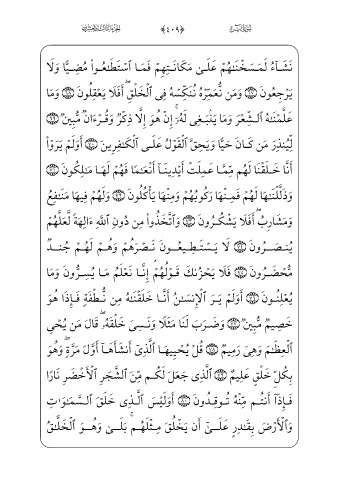 نَشَآءُ لَمَسَخْنَـٰهُمْ عَلَىٰ مَكَانَتِهِمْ فَمَا ٱسْتَطَـٰعُوا۟ مُضِيًّا وَلَا
يَرْجِعُونَ ۝ وَمَن نُّعَمِّرْهُ نُنَكِّسْهُ فِى ٱلْخَلْقِ ۖ أَفَلَا يَعْقِلُونَ ۝ وَمَا
عَلَّمْنَـٰهُ ٱلشِّعْرَ وَمَا يَنۢبَغِى لَهُۥٓ ۚ إِنْ هُوَ إِلَّا ذِكْرٌ وَقُرْءَانٌ مُّبِينٌ ۝
لِّيُنذِرَ مَن كَانَ حَيًّا وَيَحِقَّ ٱلْقَوْلُ عَلَى ٱلْكَـٰفِرِينَ ۝ أَوَلَمْ يَرَوْا۟
أَنَّا خَلَقْنَا لَهُم مِّمَّا عَمِلَتْ أَيْدِينَآ أَنْعَـٰمًا فَهُمْ لَهَا مَـٰلِكُونَ ۝
وَذَلَّلْنَـٰهَا لَهُمْ فَمِنْهَا رَكُوبُهُمْ وَمِنْهَا يَأْكُلُونَ ۝ وَلَهُمْ فِيهَا مَنَـٰفِعُ
وَمَشَارِبُ ۖ أَفَلَا يَشْكُرُونَ ۝ وَٱتَّخَذُوا۟ مِن دُونِ ٱللَّهِ ءَالِهَةً لَّعَلَّهُمْ
يُنصَرُونَ ۝ لَا يَسْتَطِيعُونَ نَصْرَهُمْ وَهُمْ لَهُمْ جُندٌ
مُّحْضَرُونَ ۝ فَلَا يَحْزُنكَ قَوْلُهُمْ ۘ إِنَّا نَعْلَمُ مَا يُسِرُّونَ وَمَا
يُعْلِنُونَ ۝ أَوَلَمْ يَرَ ٱلْإِنسَـٰنُ أَنَّا خَلَقْنَـٰهُ مِن نُّطْفَةٍ فَإِذَا هُوَ
خَصِيمٌ مُّبِينٌ ۝ وَضَرَبَ لَنَا مَثَلًا وَنَسِىَ خَلْقَهُۥ ۖ قَالَ مَن يُحْىِ
ٱلْعِظَـٰمَ وَهِىَ رَمِيمٌ ۝ قُلْ يُحْيِيهَا ٱلَّذِىٓ أَنشَأَهَآ أَوَّلَ مَرَّةٍ ۖ وَهُوَ
بِكُلِّ خَلْقٍ عَلِيمٌ ۝ ٱلَّذِى جَعَلَ لَكُم مِّنَ ٱلشَّجَرِ ٱلْأَخْضَرِ نَارًا
فَإِذَآ أَنتُم مِّنْهُ تُوقِدُونَ ۝ أَوَلَيْسَ ٱلَّذِى خَلَقَ ٱلسَّمَـٰوَٰتِ
وَٱلْأَرْضَ بِقَـٰدِرٍ عَلَىٰٓ أَن يَخْلُقَ مِثْلَهُم ۚ بَلَىٰ وَهُوَ ٱلْخَلَّـٰقُ